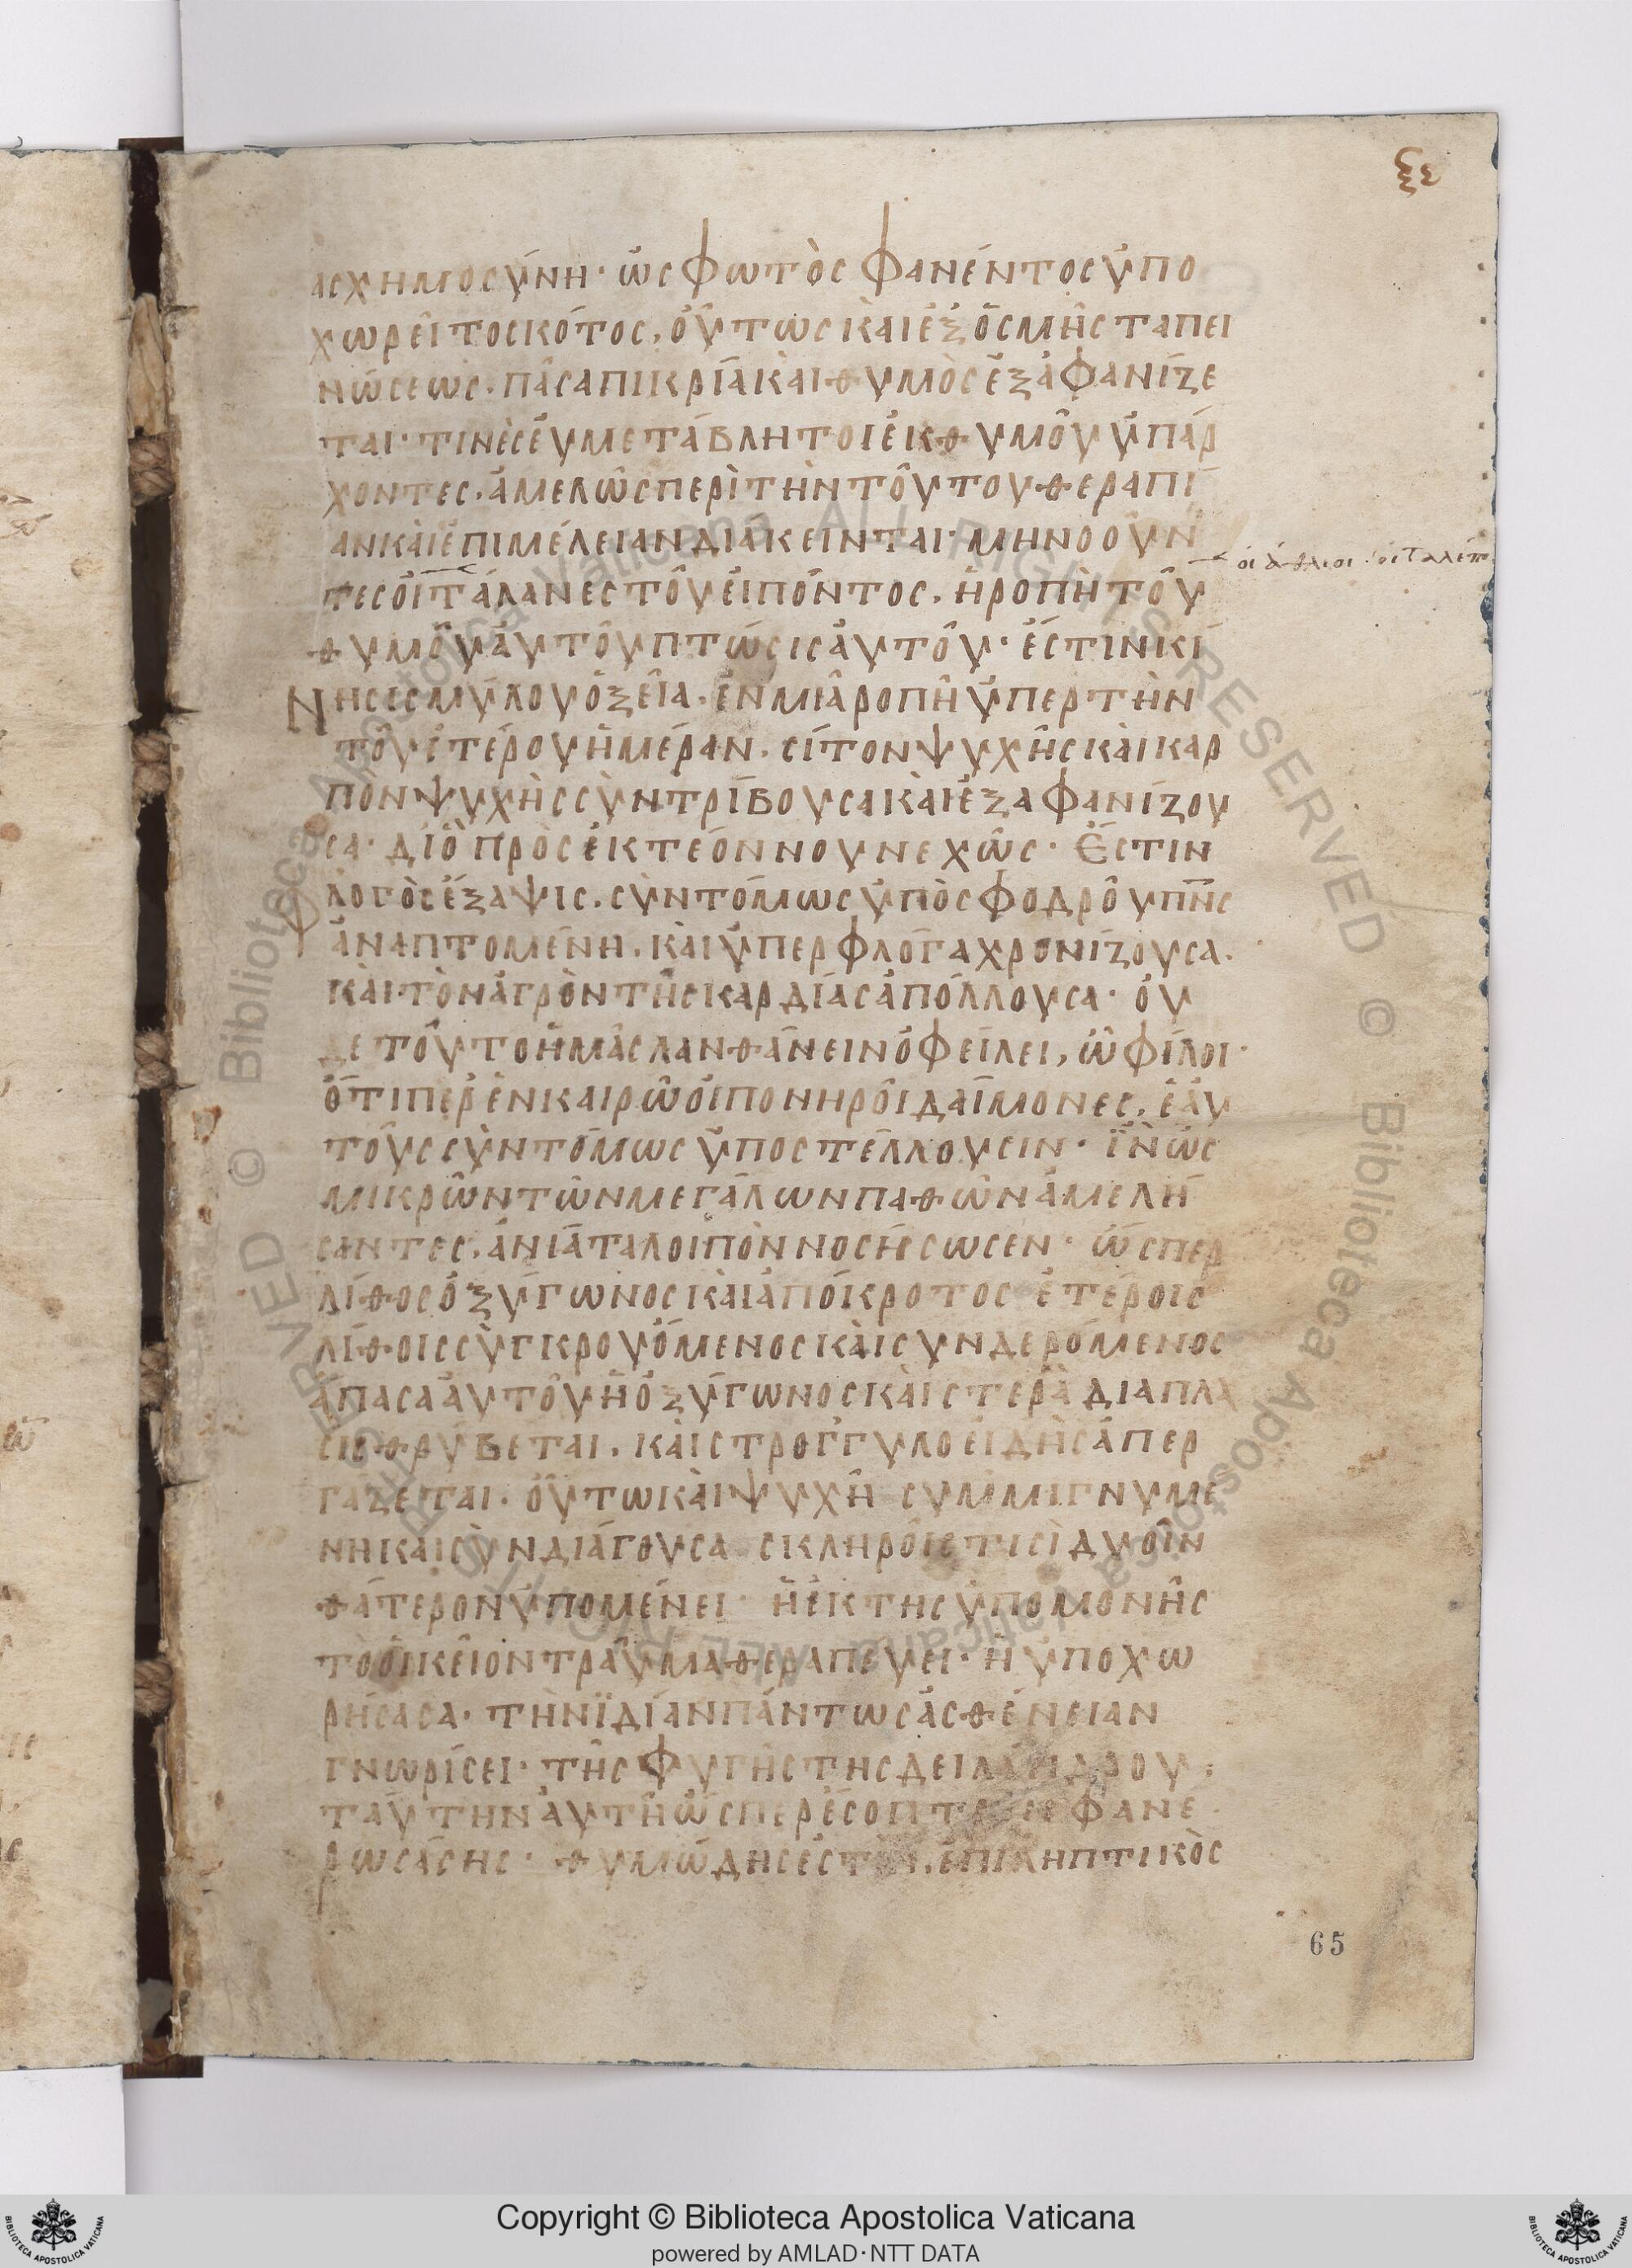 ξγ
ασχημοσύνη· ὡς φωτὸς φανέντος ὑπο
χωρεῖ τὸ σκότος, οὕτως καὶ ἐξ ὀσμῆς ταπει
νώσεως· πᾶσα πικρία καὶ θυμὸς ἐξαφανίζε
ται· τινὲς εὐμετάβλητοι ἐκ θυμοῦ ὑπάρ
χοντες, ἀμελῶς περὶ τὴν τούτου θεραπί
αν καὶ ἐπιμέλειαν διάκεινται· μὴ νοοῦν
τες οἱ τάλανες τοῦ εἰπόντος, ἡ ροπὴ τοῦ
οἱ ἄθλιοι · οἱ ταλέπ
θυμοῦ αὐτοῦ πτῶσις αὐτοῦ· ἔστιν κί
νησες μύλου ὀξεῖα, ἐν μιᾷ ροπῇ ὑπὲρ τὴν
τοῦ ἑτέρου ἡμέραν, σίτον ψυχῆς καὶ καρ
πὸν ψυχῆς συντρίβουσα καὶ ἐξαφανίζου
σα· διὸ προσεκτέον νουνεχῶς· Ἔστιν
λογὸς ἔξαψις, συντόμως ὑπὸ σφοδροῦ πνς
ἀναπτομένη, καὶ ὑπὲρ φλόγα χρονίζουσα·
καὶ τὸν ἀγρὸν τῆς καρδίας ἀπόλλουσα· οὐ
δὲ τοῦτο ἡμᾶς λανθάνειν ὀφείλει, ὦ φίλοι·
ὅτιπερ ἐν καιρῷ οἱ πονηροὶ δαίμονες, ἑαυ
τοὺς συντόμως ὑποστέλλουσιν· ἵν' ὡς
μικρῶν τῶν μεγάλων παθῶν ἀμελή
σαντες, ἀνίατα λοιπὸν νοσήσωσεν· ὥσπερ
λίθος ὀξύγωνος καὶ ἀπόκροτος ἑτέροις
λίθοις συγκρουόμενος καὶ συνδερόμενος
ἅπασα αὐτοῦ ἡ ὀξύγωνος καὶ στερὰ διαπλα
σις θρύβεται, καὶ στρογγυλοειδὴς ἀπερ
γάζεται· οὕτω καὶ ψυχὴ συμμιγνυμέ
νη καὶ συνδιάγουσα σκληροῖς τισὶ δυοῖν
θάτερον ὑπομένει· ἢ ἐκ τῆς ὑπομονῆς
τὸ οἰκεῖον τραῦμα θεραπεύει· ἢ ὑποχω
ρήσασα· τὴν ἰδίαν πάντως ἀσθένειαν
γνωρίσει· τῆς φυγῆς τῆς δειλάνδρου·
ταύτην αὐτῇ ὥσπερ ἐσόπτρῳ φανε
ρωσάσης· θυμώδης ἐστὶν, ἐπιληπτικὸς
65
Copyright © Biblioteca Apostolica Vaticana
powered by AMLAD·NTT DATA